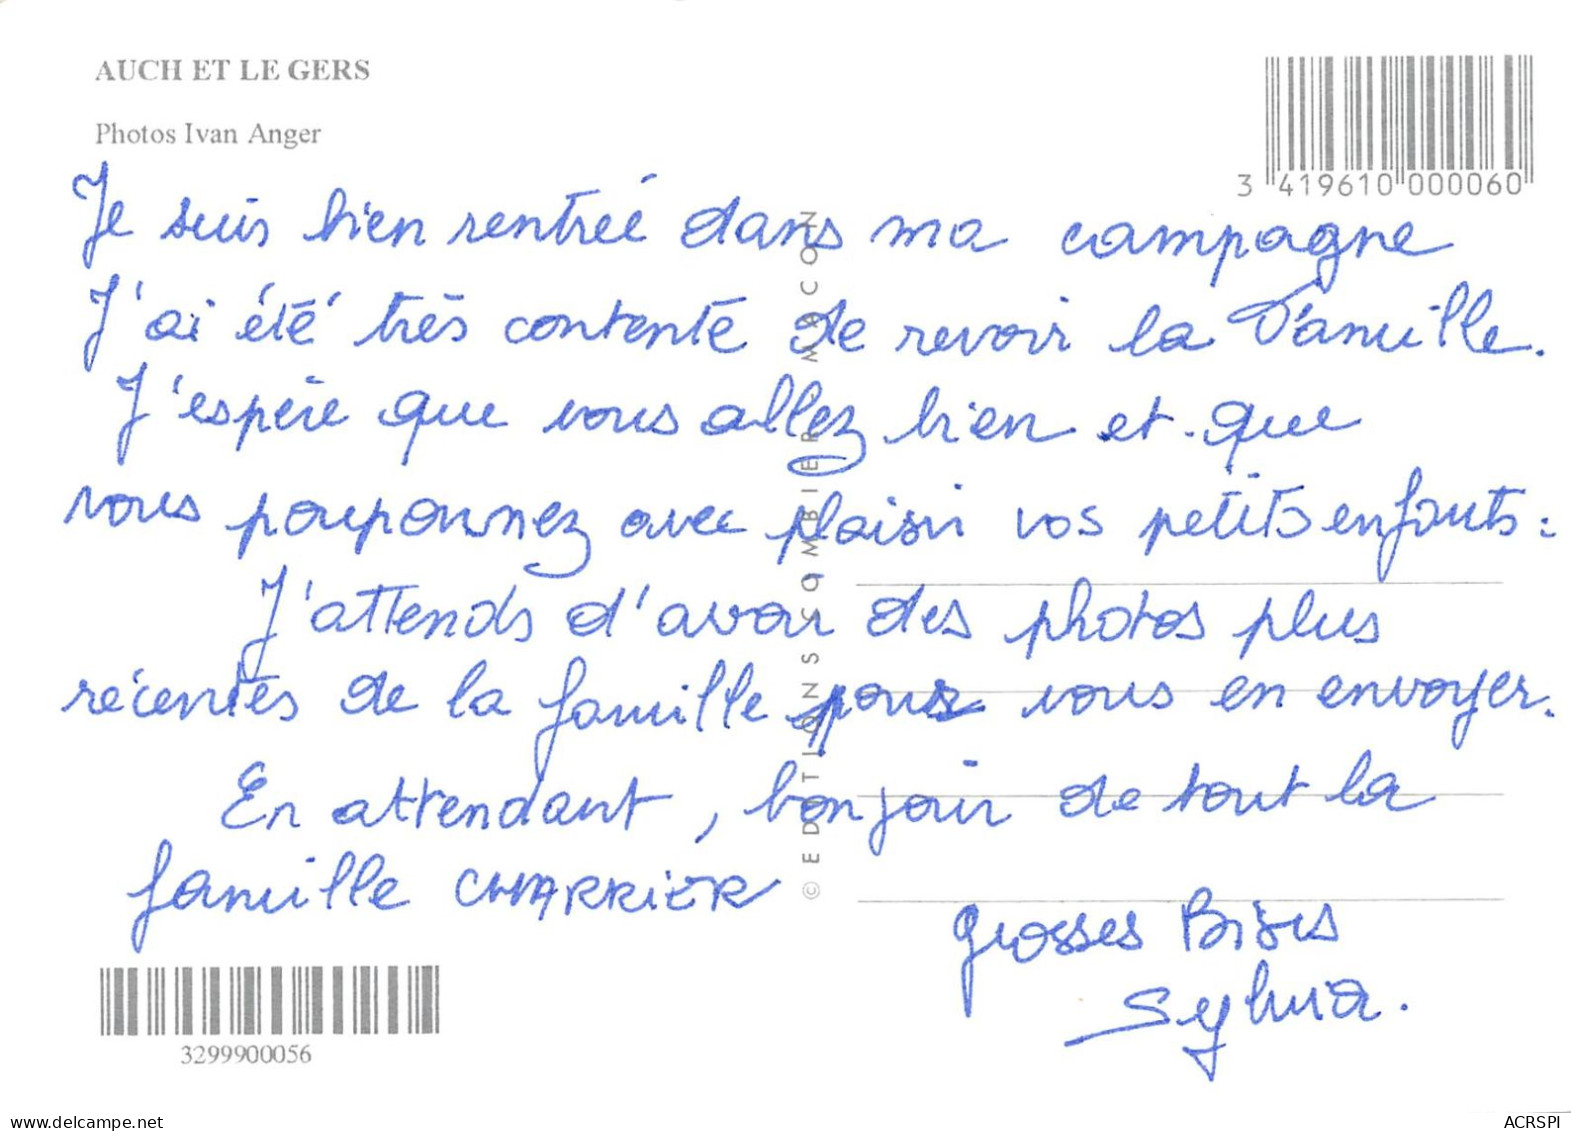 AUCH ET LE GERS
Photos Ivan Anger
3 419610 000060
Je suis bien rentrée dans ma campagne
J'ai été très contente de revoir la famille.
J'espère que vous allez bien et que
vous pouponnez avec plaisir vos petits enfants.
J'attends d'avoir des photos plus
récentes de la famille pour vous en envoyer.
En attendant, bonjour de tout la
famille CHARRIER
grosses Bises
Sylvia.
© EDITIONS COMBIER MACON
3299900056
www.delcampe.net
ACRSPI